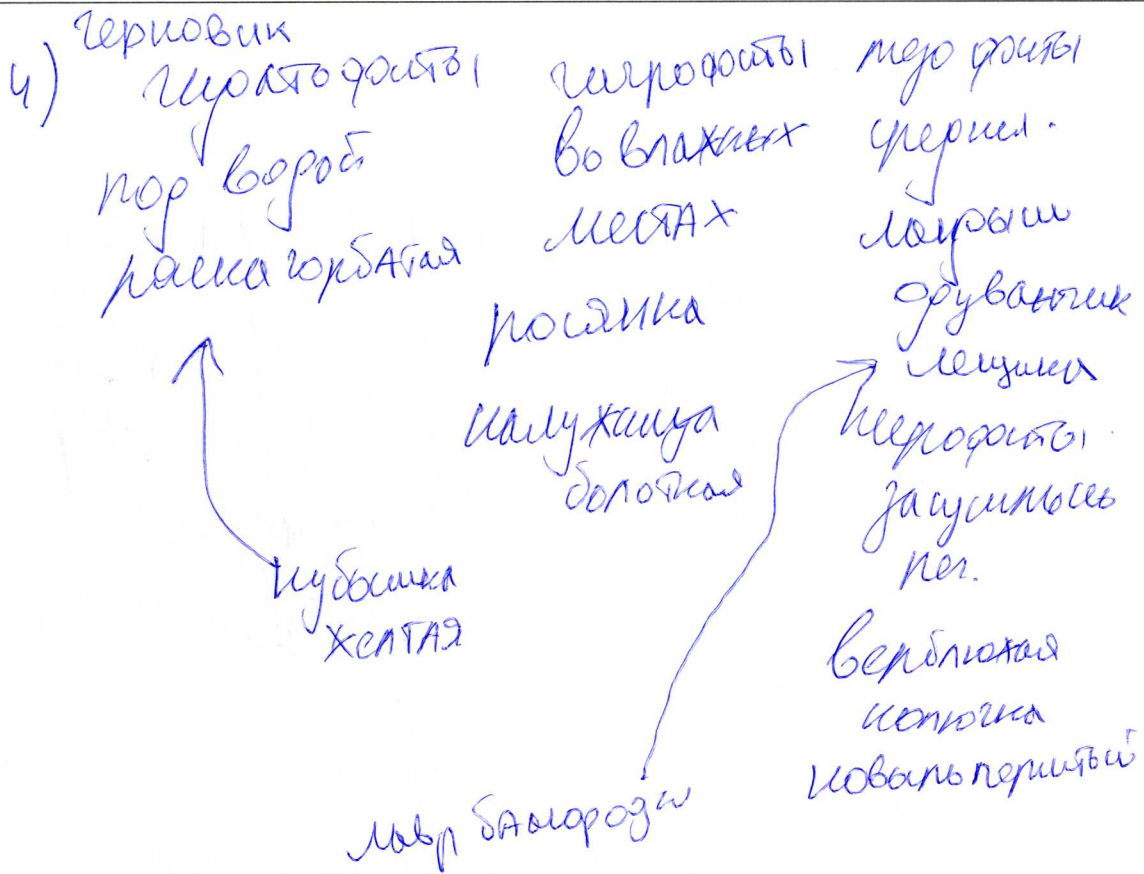 черновик
4) гидатофиты
под водой
ряска горбатая
кубышка
желтая
гигрофиты
во влажных
местах
росянка
калужница
болотная
мезофиты
средние.
ландыш
одуванчик
лещина
ксерофиты
верблюжая
колючка
ковыль перистый
лавр благородн